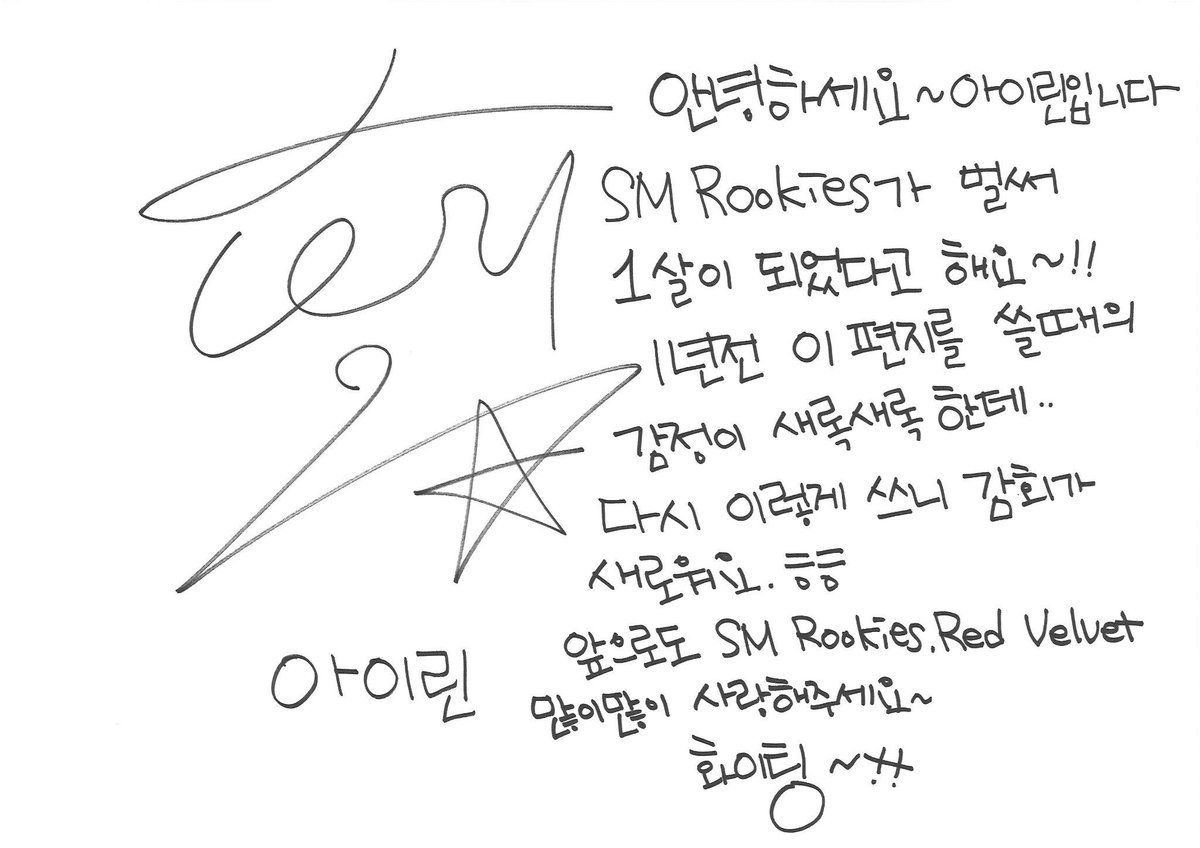 안녕하세요~아이린입니다
SM Rookies가 벌써
1살이 되었다고 해요~!!
1년전 이 편지를 쓸때의
감정이 새록새록 한데..
다시 이렇게 쓰니 감회가
새로워요. ㅎㅎ
앞으로도 SM Rookies, Red Velvet
많이많이 사랑해주세요~
화이팅~!!
아이린